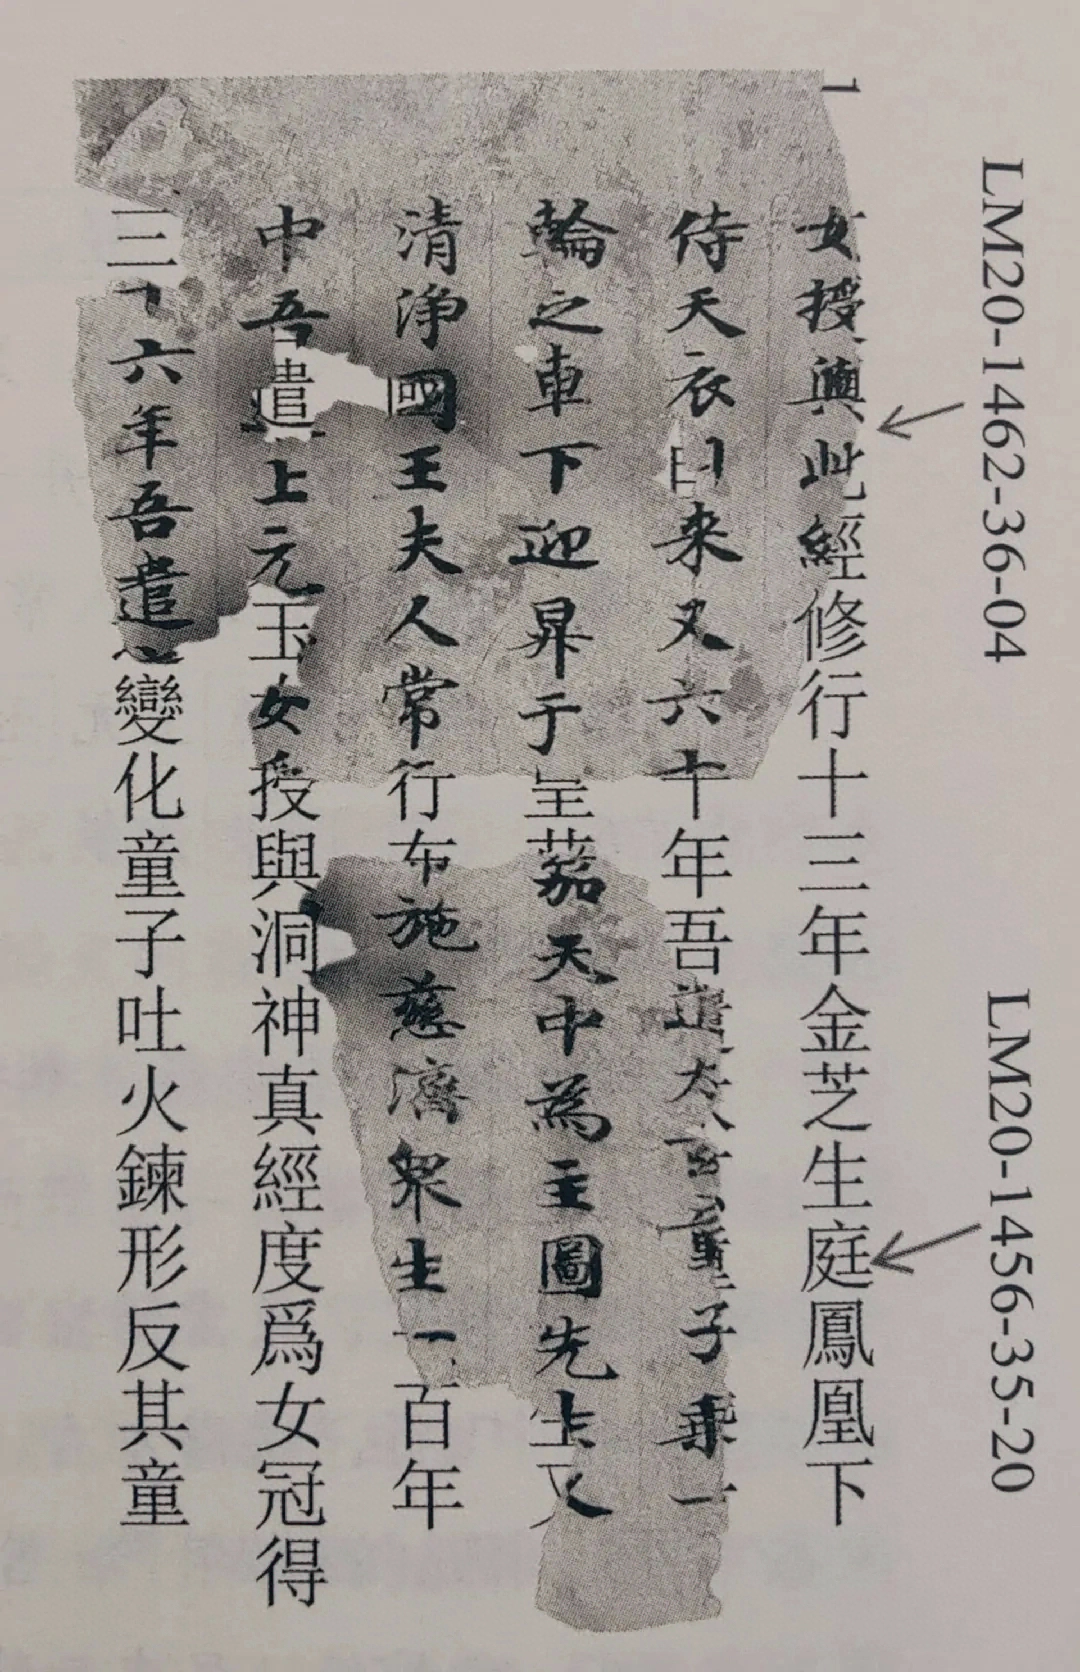 LM20-1462-36-04
LM20-1456-35-20
1
女授與此經修行十三年金芝生庭鳳凰下
侍天衣日來又六十年吾遣太玄童子乘一
輪之車下迎昇于呈茄天中為主圖先生又
清淨國王夫人常行布施慈濟眾生一百年
中吾遣上元玉女授與洞神真經度爲女冠得
三十六年吾遣變化童子吐火鍊形反其童